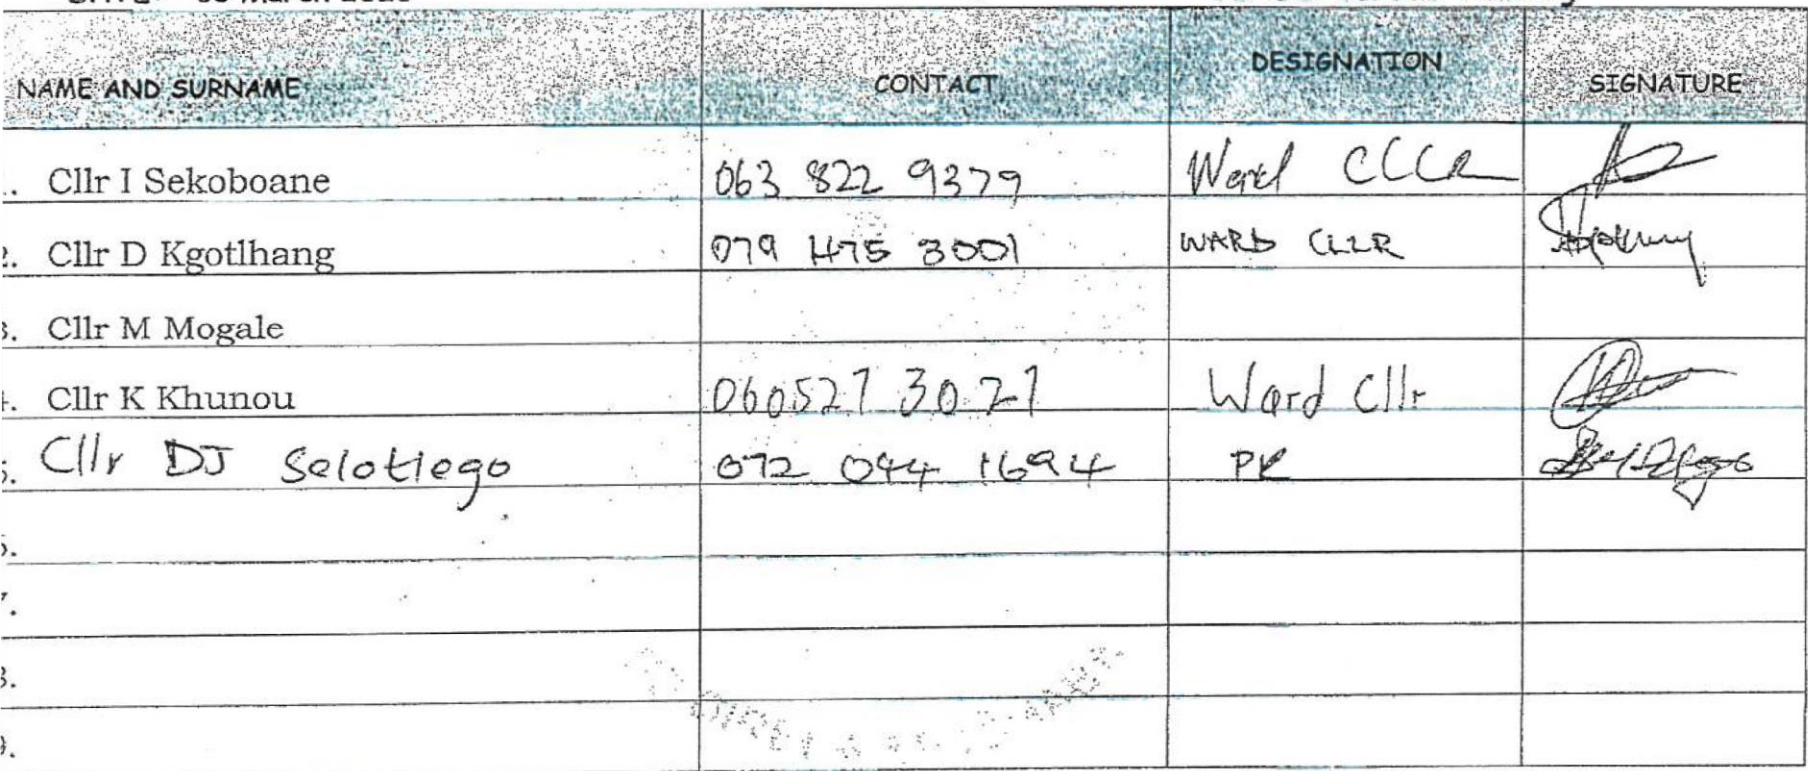 NAME AND SURNAME CONTACT DESIGNATION SIGNATURE
1. Cllr I Sekoboane 063 822 9379 Ward CLLR
2. Cllr D Kgotlhang 079 475 3001 WARD CLLR
3. Cllr M Mogale
4. Cllr K Khunou 060527 3027 Ward Cllr
5. Cllr DJ Selotlego 072 044 1694 PR
6.
7.
8.
9.